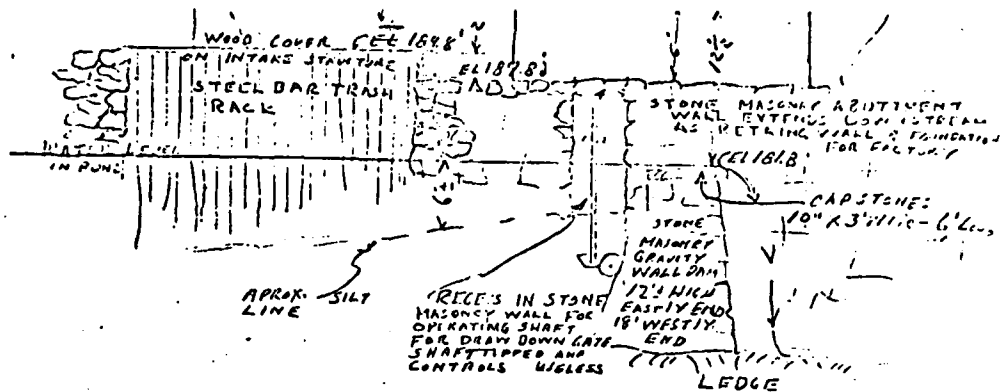 WOOD COVER EL 184.8'
ON INTAKE STRUCTURE
EL 187.8'
STEEL BAR TRASH
RACK
STONE MASONRY ABUTTMENT
WALL EXTENDS DOWNSTREAM
AS RETAING WALL & FOUNDATION
FOR FACTORY
WATER LEVEL
IN POND
EL 181.8'
CAPSTONES
10" X 3'
STONE
MASONRY
GRAVITY
WALL DAM
12'± HIGH
EASTLY END
18' WESTLY
END
APROX. SILT
LINE
RECESS IN STONE
MASONRY WALL FOR
OPERATING SHAFT
FOR DRAW DOWN GATE
SHAFT TIPPED AND
CONTROLS USELESS
LEDGE